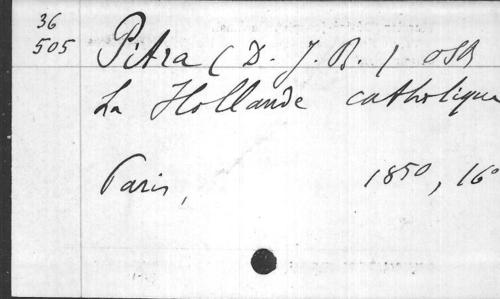 36
505
Pitra (D. J. B.) OSB
La Hollande catholique
Paris, 1850, 16°